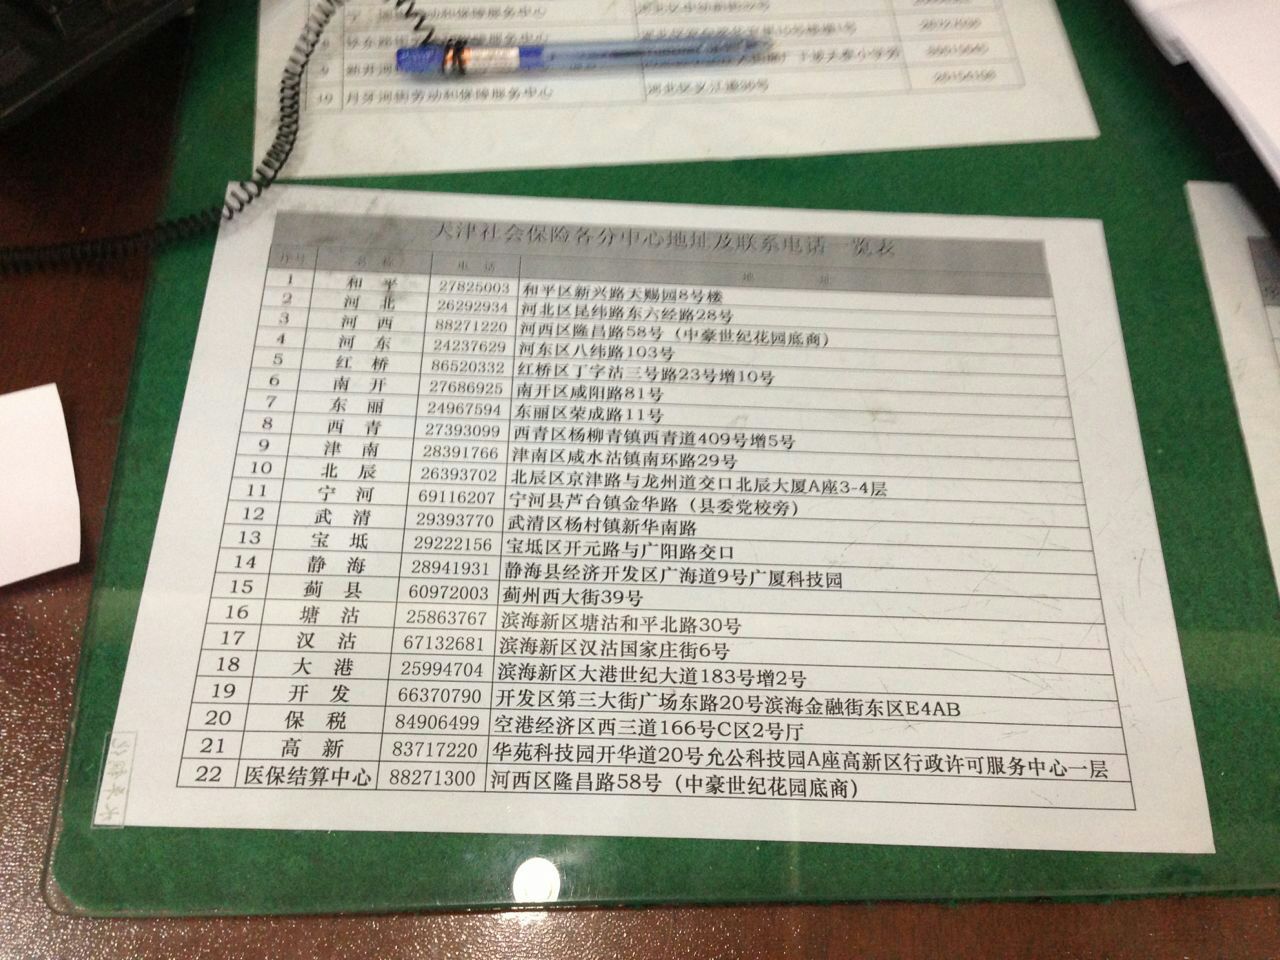 月牙河街劳动和保障服务中心
天津社会保险各分中心地址及联系电话一览表
序号 名 称 电 话 地 址
1 和 平 27825003 和平区新兴路天赐园8号楼
2 河 北 26292934 河北区昆纬路东六经路28号
3 河 西 88271220 河西区隆昌路58号（中豪世纪花园底商）
4 河 东 24237629 河东区八纬路103号
5 红 桥 86520332 红桥区丁字沽三号路23号增10号
6 南 开 27686925 南开区咸阳路81号
7 东 丽 24967594 东丽区荣成路11号
8 西 青 27393099 西青区杨柳青镇西青道409号增5号
9 津 南 28391766 津南区咸水沽镇南环路29号
10 北 辰 26393702 北辰区京津路与龙州道交口北辰大厦A座3-4层
11 宁 河 69116207 宁河县芦台镇金华路（县委党校旁）
12 武 清 29393770 武清区杨村镇新华南路
13 宝 坻 29222156 宝坻区开元路与广阳路交口
14 静 海 28941931 静海县经济开发区广海道9号广厦科技园
15 蓟 县 60972003 蓟州西大街39号
16 塘 沽 25863767 滨海新区塘沽和平北路30号
17 汉 沽 67132681 滨海新区汉沽国家庄街6号
18 大 港 25994704 滨海新区大港世纪大道183号增2号
19 开 发 66370790 开发区第三大街广场东路20号滨海金融街东区E4AB
20 保 税 84906499 空港经济区西三道166号C区2号厅
21 高 新 83717220 华苑科技园开华道20号允公科技园A座高新区行政许可服务中心一层
22 医保结算中心 88271300 河西区隆昌路58号（中豪世纪花园底商）